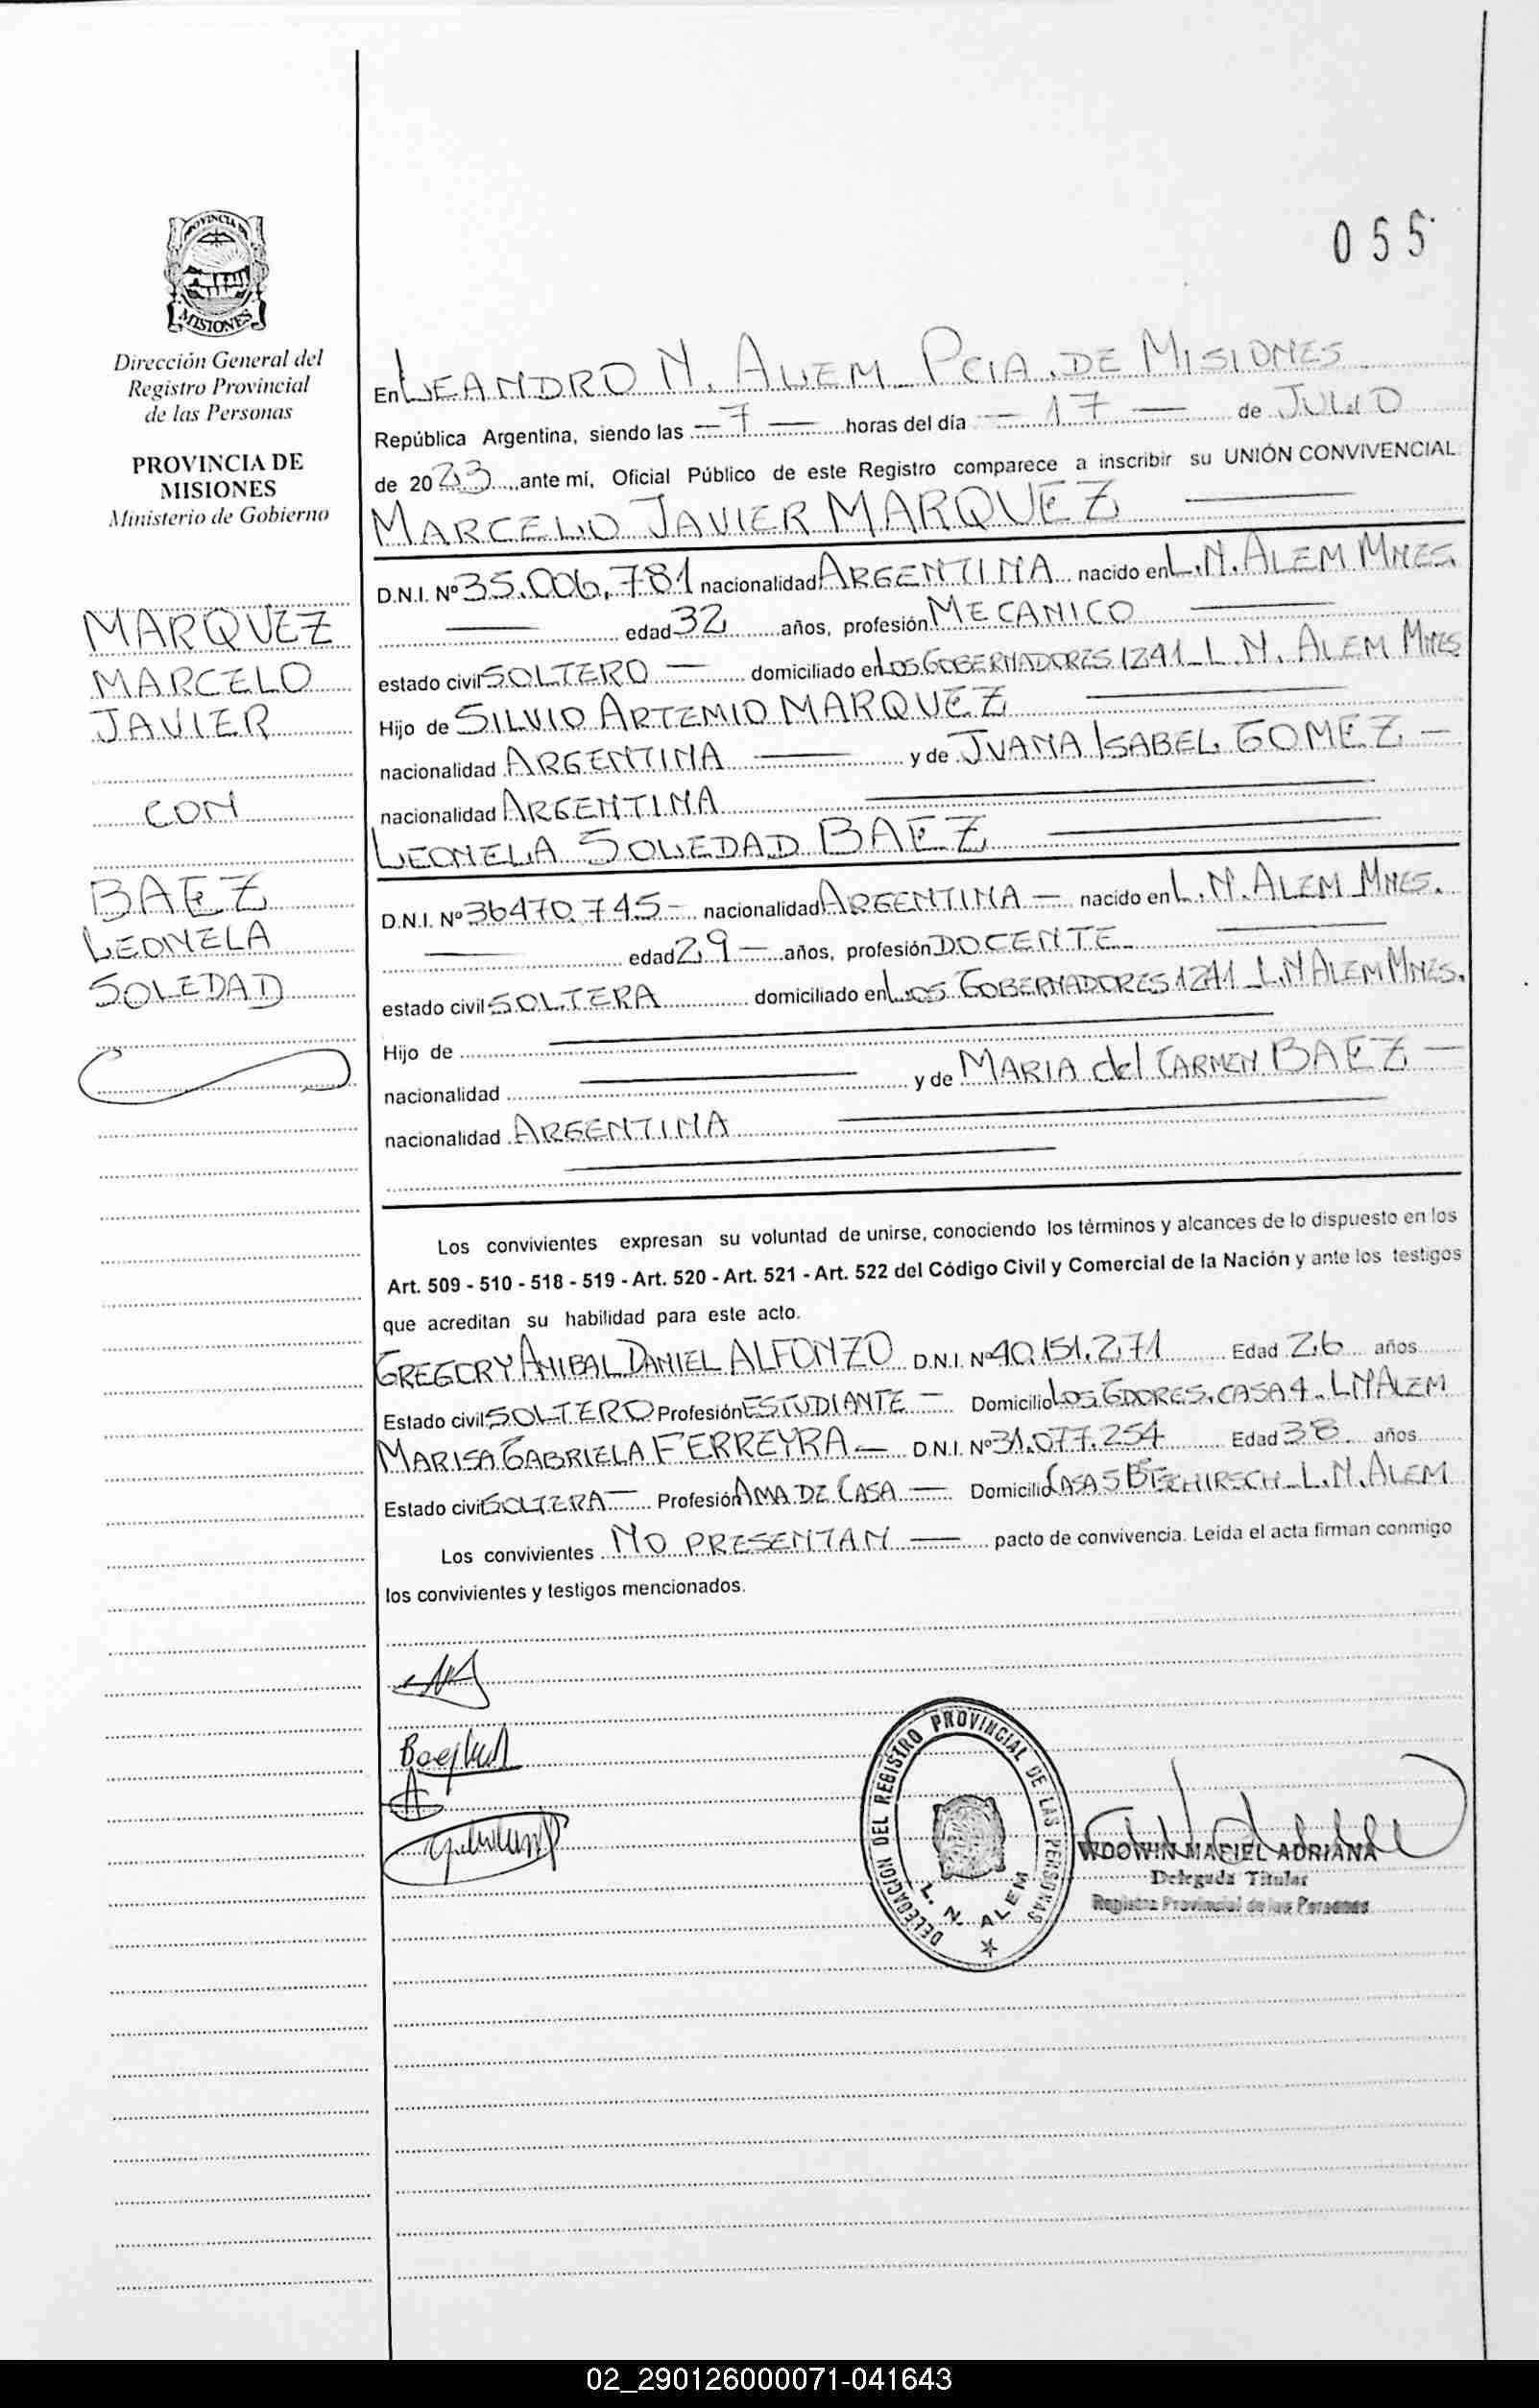 PROVINCIA DE
MISIONES
Dirección General del
Registro Provincial
de las Personas
PROVINCIA DE
MISIONES
Ministerio de Gobierno
MARQUEZ
MARCELO
JAVIER
CON
BAEZ
LEONELA
SOLEDAD
055
En LEANDRO N. ALEM - PCIA. DE MISIONES
República Argentina, siendo las - 7 - horas del día - 17 - de JULIO
de 2023, ante mí, Oficial Público de este Registro comparece a inscribir su UNIÓN CONVIVENCIAL
MARCELO JAVIER MARQUEZ
D.N.I. Nº 35.006.781 nacionalidad ARGENTINA nacido en L.N. ALEM MNES.
edad 32 años, profesión MECANICO
estado civil SOLTERO - domiciliado en LOS GOBERNADORES 1241 - L.N. ALEM MNES
Hijo de SILVIO ARTEMIO MARQUEZ
nacionalidad ARGENTINA y de JUANA ISABEL GOMEZ -
nacionalidad ARGENTINA
LEONELA SOLEDAD BAEZ
D.N.I. Nº 36470.745 - nacionalidad ARGENTINA - nacido en L.N. ALEM MNES.
edad 29 - años, profesión DOCENTE
estado civil SOLTERA domiciliado en LOS GOBERNADORES 1241 - L.N ALEM MNES.
Hijo de
nacionalidad y de MARIA del CARMEN BAEZ -
nacionalidad ARGENTINA
Los convivientes expresan su voluntad de unirse, conociendo los términos y alcances de lo dispuesto en los
Art. 509 - 510 - 518 - 519 - Art. 520 - Art. 521 - Art. 522 del Código Civil y Comercial de la Nación y ante los testigos
que acreditan su habilidad para este acto.
GREGORY ANIBAL DANIEL ALFONZO D.N.I. Nº 40.151.271 Edad 26 años
Estado civil SOLTERO Profesión ESTUDIANTE - Domicilio LOS GDORES. CASA 4 - LN ALEM
MARISA GABRIELA FERREYRA - D.N.I. Nº 31.077.254 Edad 38 años
Estado civil SOLTERA - Profesión AMA DE CASA - Domicilio CASA 5 Bº HIRSCH - L.N. ALEM
Los convivientes NO PRESENTAN - pacto de convivencia. Leída el acta firman conmigo
los convivientes y testigos mencionados.
DELEGACION DEL REGISTRO PROVINCIAL DE LAS PERSONAS
L. N. ALEM
WDOWIN MARIEL ADRIANA
Delegada Titular
Registro Provincial de las Personas
02_290126000071-041643